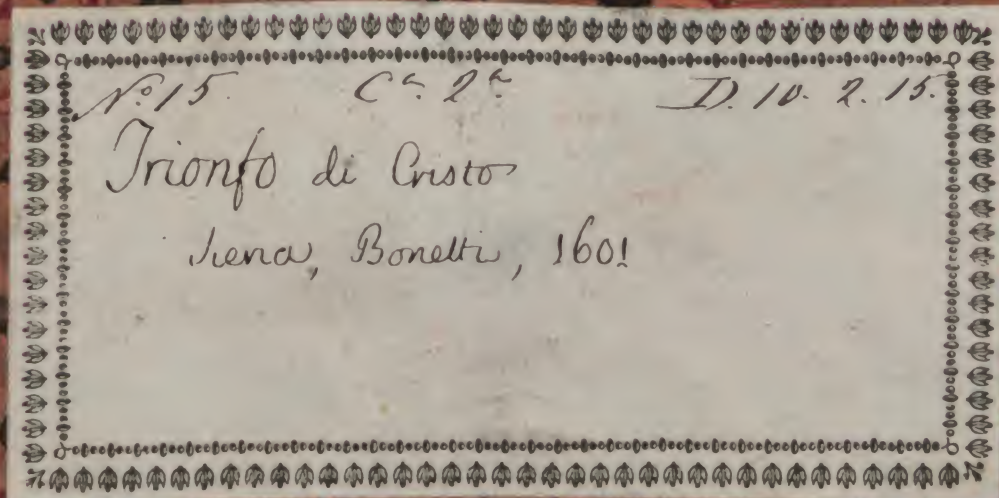 No 15. Ca 2a D. 10. 2. 15.
Trionfo di Cristo
Siena, Bonetti, 1601